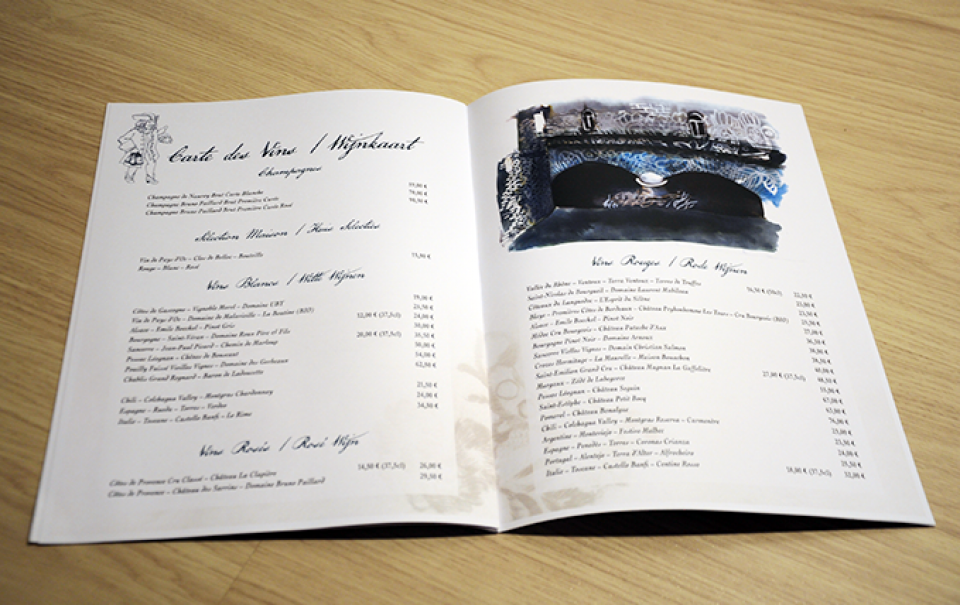 Carte des Vins / Wijnkaart
Champagnes
Champagne de Nauroy Brut Carte Blanche 59,00 €
Champagne Bruno Paillard Brut Première Cuvée 79,00 €
Champagne Bruno Paillard Brut Première Cuvée Rosé 98,50 €
Sélection Maison / Huis Selectie
Vin de Pays d'Oc – Clos de Belloc – Bouteille 19,50 €
Rouge – Blanc – Rosé
Vins Blancs / Witte Wijnen
Côtes de Gascogne – Vignoble Morel – Domaine UBY 19,00 €
Vin de Pays d'Oc – Domaine de Malavieille – La Boutine (BIO) 23,50 €
Alsace – Emile Boeckel – Pinot Gris 12,00 € (37,5cl) 24,00 €
Bourgogne – Saint-Véran – Domaine Roux Père et Fils 30,00 €
Sancerre – Jean-Paul Picard – Chemin de Marloup 20,00 € (37,5cl) 35,50 €
Pessac Léognan – Château de Rouillac 50,00 €
Pouilly Fuissé Vieilles Vignes – Domaine des Gerbeaux 54,00 €
Chablis Grand Regnard – Baron de Ladoucette 62,00 €
Chili – Colchagua Valley – Montgras Chardonnay 25,50 €
Espagne – Rueda – Torres – Verdeo 24,00 €
Italie – Toscane – Castello Banfi – Le Rime 34,50 €
Vins Rosés / Rosé Wijn
Côtes de Provence Cru Classé – Château La Clapière 14,50 € (37,5cl) 26,00 €
Côtes de Provence – Château des Sarrins – Domaine Bruno Paillard 29,50 €
Vins Rouges / Rode Wijnen
Vallée du Rhône – Ventoux – Terra Ventoux – Terres de Truffes
Saint-Nicolas de Bourgueil – Domaine Laurent Mabileau 16,50 € (50cl) 22,00 €
Côteaux du Languedoc – L'Esprit du Silène 23,00 €
Blaye – Premières Côtes de Bordeaux – Château Peybonhomme Les Tours – Cru Bourgeois (BIO) 23,50 €
Alsace – Emile Boeckel – Pinot Noir
Médoc Cru Bourgeois – Château Patache d'Aux
Bourgogne Pinot Noir – Domaine Arnoux
Sancerre Vieilles Vignes – Domain Christian Salmon
Crozes Hermitage – La Maurelle – Maison Bouachon
Saint-Emilian Grand Cru – Château Magnan La Gaffelière
Margaux – Zédé de Labégorce 27,00 € (37,5cl)
Pessac Léognan – Château Seguin
Saint-Estèphe – Château Petit Bocq
Pomerol – Château Bonalgue
Chili – Colchagua Valley – Montgras Reserva – Carmenère
Argentine – Monteviejo – Festivo Malbec
Espagne – Penedès – Torres – Coronas Crianza
Portugal – Alentejo – Terra d'Alter – Alfrocheiro
Italie – Toscane – Castello Banfi – Centine Rosso 18,00 € (37,5cl) 32,00 €